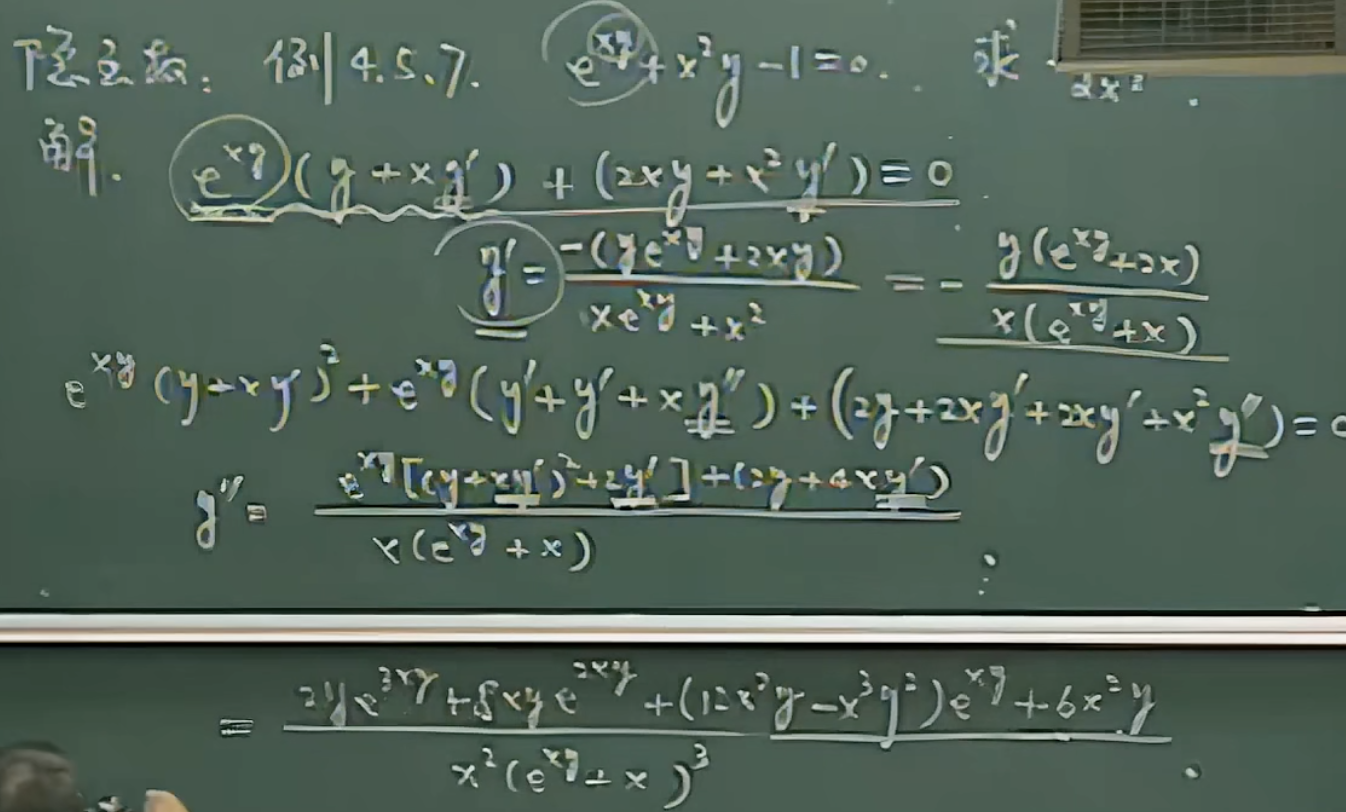 隐函数. 例 4.5.7. e^{xy} + x²y - 1 = 0. 求 dx² .
解. e^{xy}(y + xy') + (2xy + x²y') = 0
y' = -(ye^{xy} + 2xy) / (xe^{xy} + x²) = - y(e^{xy} + 2x) / (x(e^{xy} + x))
e^{xy}(y + xy')² + e^{xy}(y' + y' + xy'') + (2y + 2xy' + 2xy' + x²y'') = 0
y'' = e^{xy}[(y + xy')² + 2y'] + (2y + 4xy') / (x(e^{xy} + x))
= 2ye^{3xy} + 8xye^{2xy} + (12x²y - x³y²)e^{xy} + 6x²y / (x²(e^{xy} + x)³) .